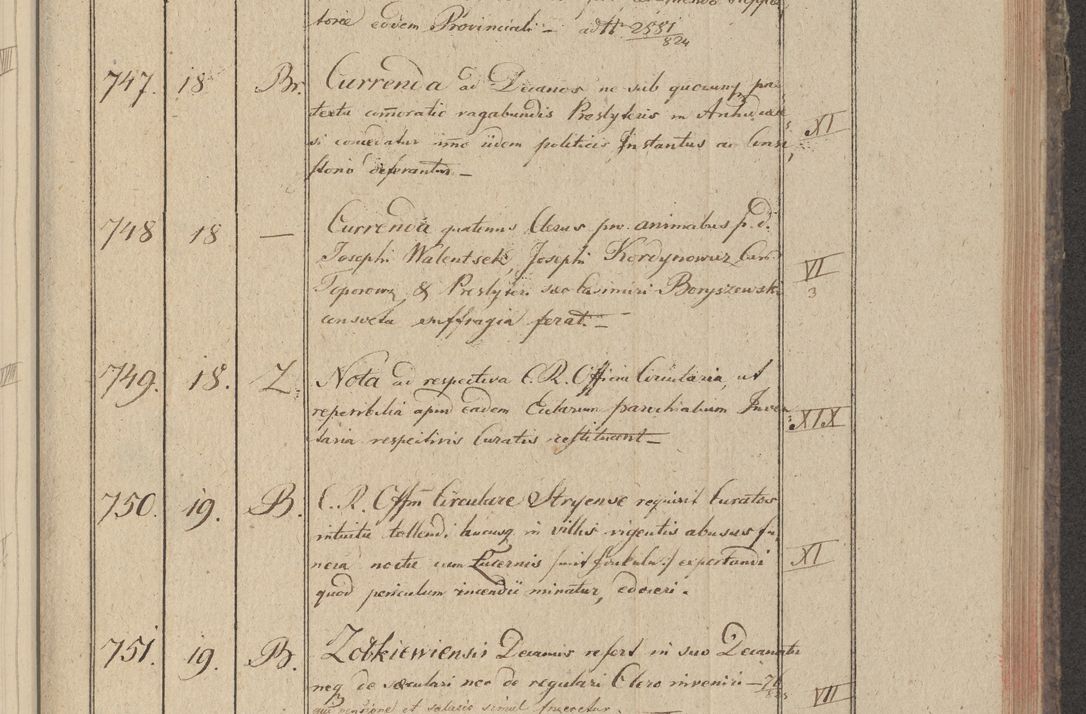 toriæ eidem Provinciali – ad N 2551/824
747. 18 Br. Currenda ad Decanos ne sub quocunq prae
textu com̄oratio vagabundis Presbyteris in
si concedatur imo iidem politicis Instantiis ac Consi XI
storio deferantur –
748 18 — Currenda quatenus Clerus pro animabus p. d.
Josephi Walentsek, Josephi Kordynowicz Cur.
Toporow, & Presbyteri Casimiri Boryszewski VI 3
consveta suffragia ferat. –
749. 18. Z. Nota ad respectiva C. R. Officia Circularia, ut
reperibilia apud eadem Ecclarum parochialium Inven
taria respectivis Curatis restituant – XIX
750. 19. B. C. R. Offm Circulare Stryense requirit Curatos
intuitu tollendi hucusq in villis vigentis abusus fu
nera noctu cum Lucernis exportandi XI
quod periculum incendii minatur, edoceri.
751. 19. Br. Zołkiewiensis Decanus refert in suo Decanatu
neq de sæculari nec de regulari Clero inveniri – VII
qui pensione et salario simul frueretur.